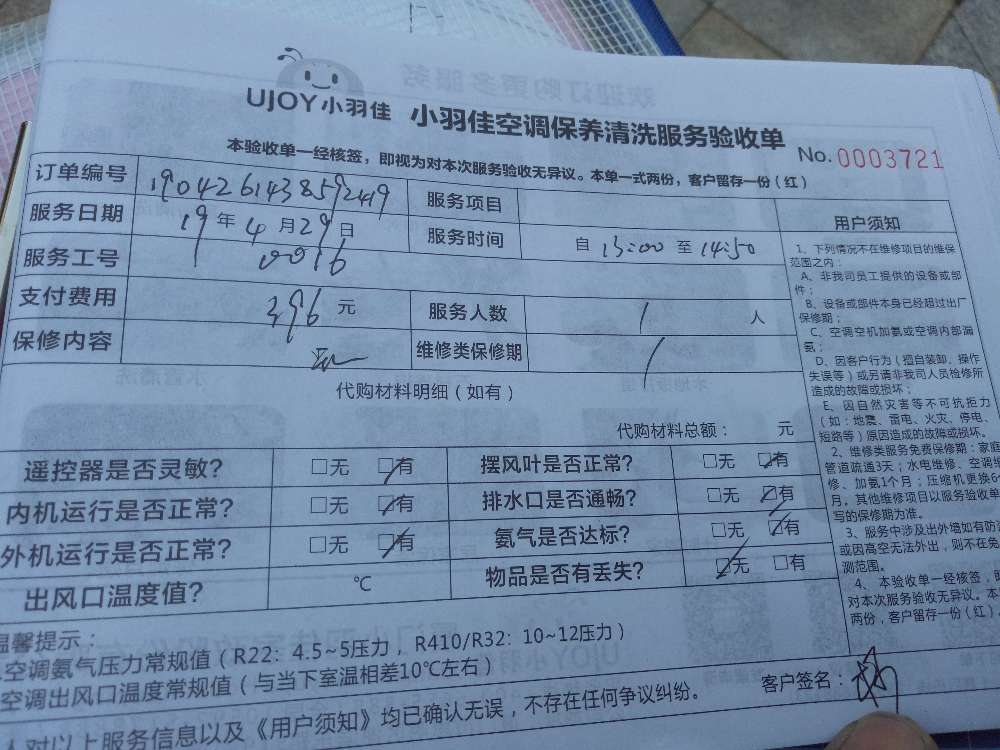 UJOY小羽佳 小羽佳空调保养清洗服务验收单
No. 0003721
本验收单一经核签，即视为对本次服务验收无异议。本单一式两份，客户留存一份（红）
订单编号 1904261438592419 服务项目
服务日期 19年4月29日 服务时间 自13:00至14:50
服务工号 0016
支付费用 396元 服务人数 1人
保修内容 维修类保修期 /
代购材料明细（如有）
代购材料总额： 元
遥控器是否灵敏? □无 ☑有 摆风叶是否正常? □无 ☑有
内机运行是否正常? □无 ☑有 排水口是否通畅? □无 ☑有
外机运行是否正常? □无 ☑有 氨气是否达标? □无 ☑有
出风口温度值? ℃ 物品是否有丢失? ☑无 □有
用户须知
1、下列情况不在维修项目的维保
范围之内：
A、非我司员工提供的设备或部
件；
B、设备或部件本身已经超过出厂
保修期；
C、空调空机加氨或空调内部漏
氨；
D、因客户行为（擅自装卸、操作
失误等）或另请非我司人员检修所
造成的故障或损坏；
E、因自然灾害等不可抗拒力
（如：地震、雷电、火灾、停电、
短路等）原因造成的故障或损坏。
2、维修类服务免费保修期：家庭
管道疏通3天；水电维修、空调维
修、加氨1个月；压缩机更换6
月，其他维修项目以服务验收单
写的保修期为准。
3、服务中涉及出外墙如有防
或因高空无法外出，则不在免
测范围。
4、本验收单一经核签，
对本次服务验收无异议。本
两份，客户留存一份（红）
温馨提示：
空调氨气压力常规值（R22：4.5~5压力， R410/R32：10~12压力）
空调出风口温度常规值（与当下室温相差10℃左右）
人对以上服务信息以及《用户须知》均已确认无误，不存在任何争议纠纷。
客户签名：